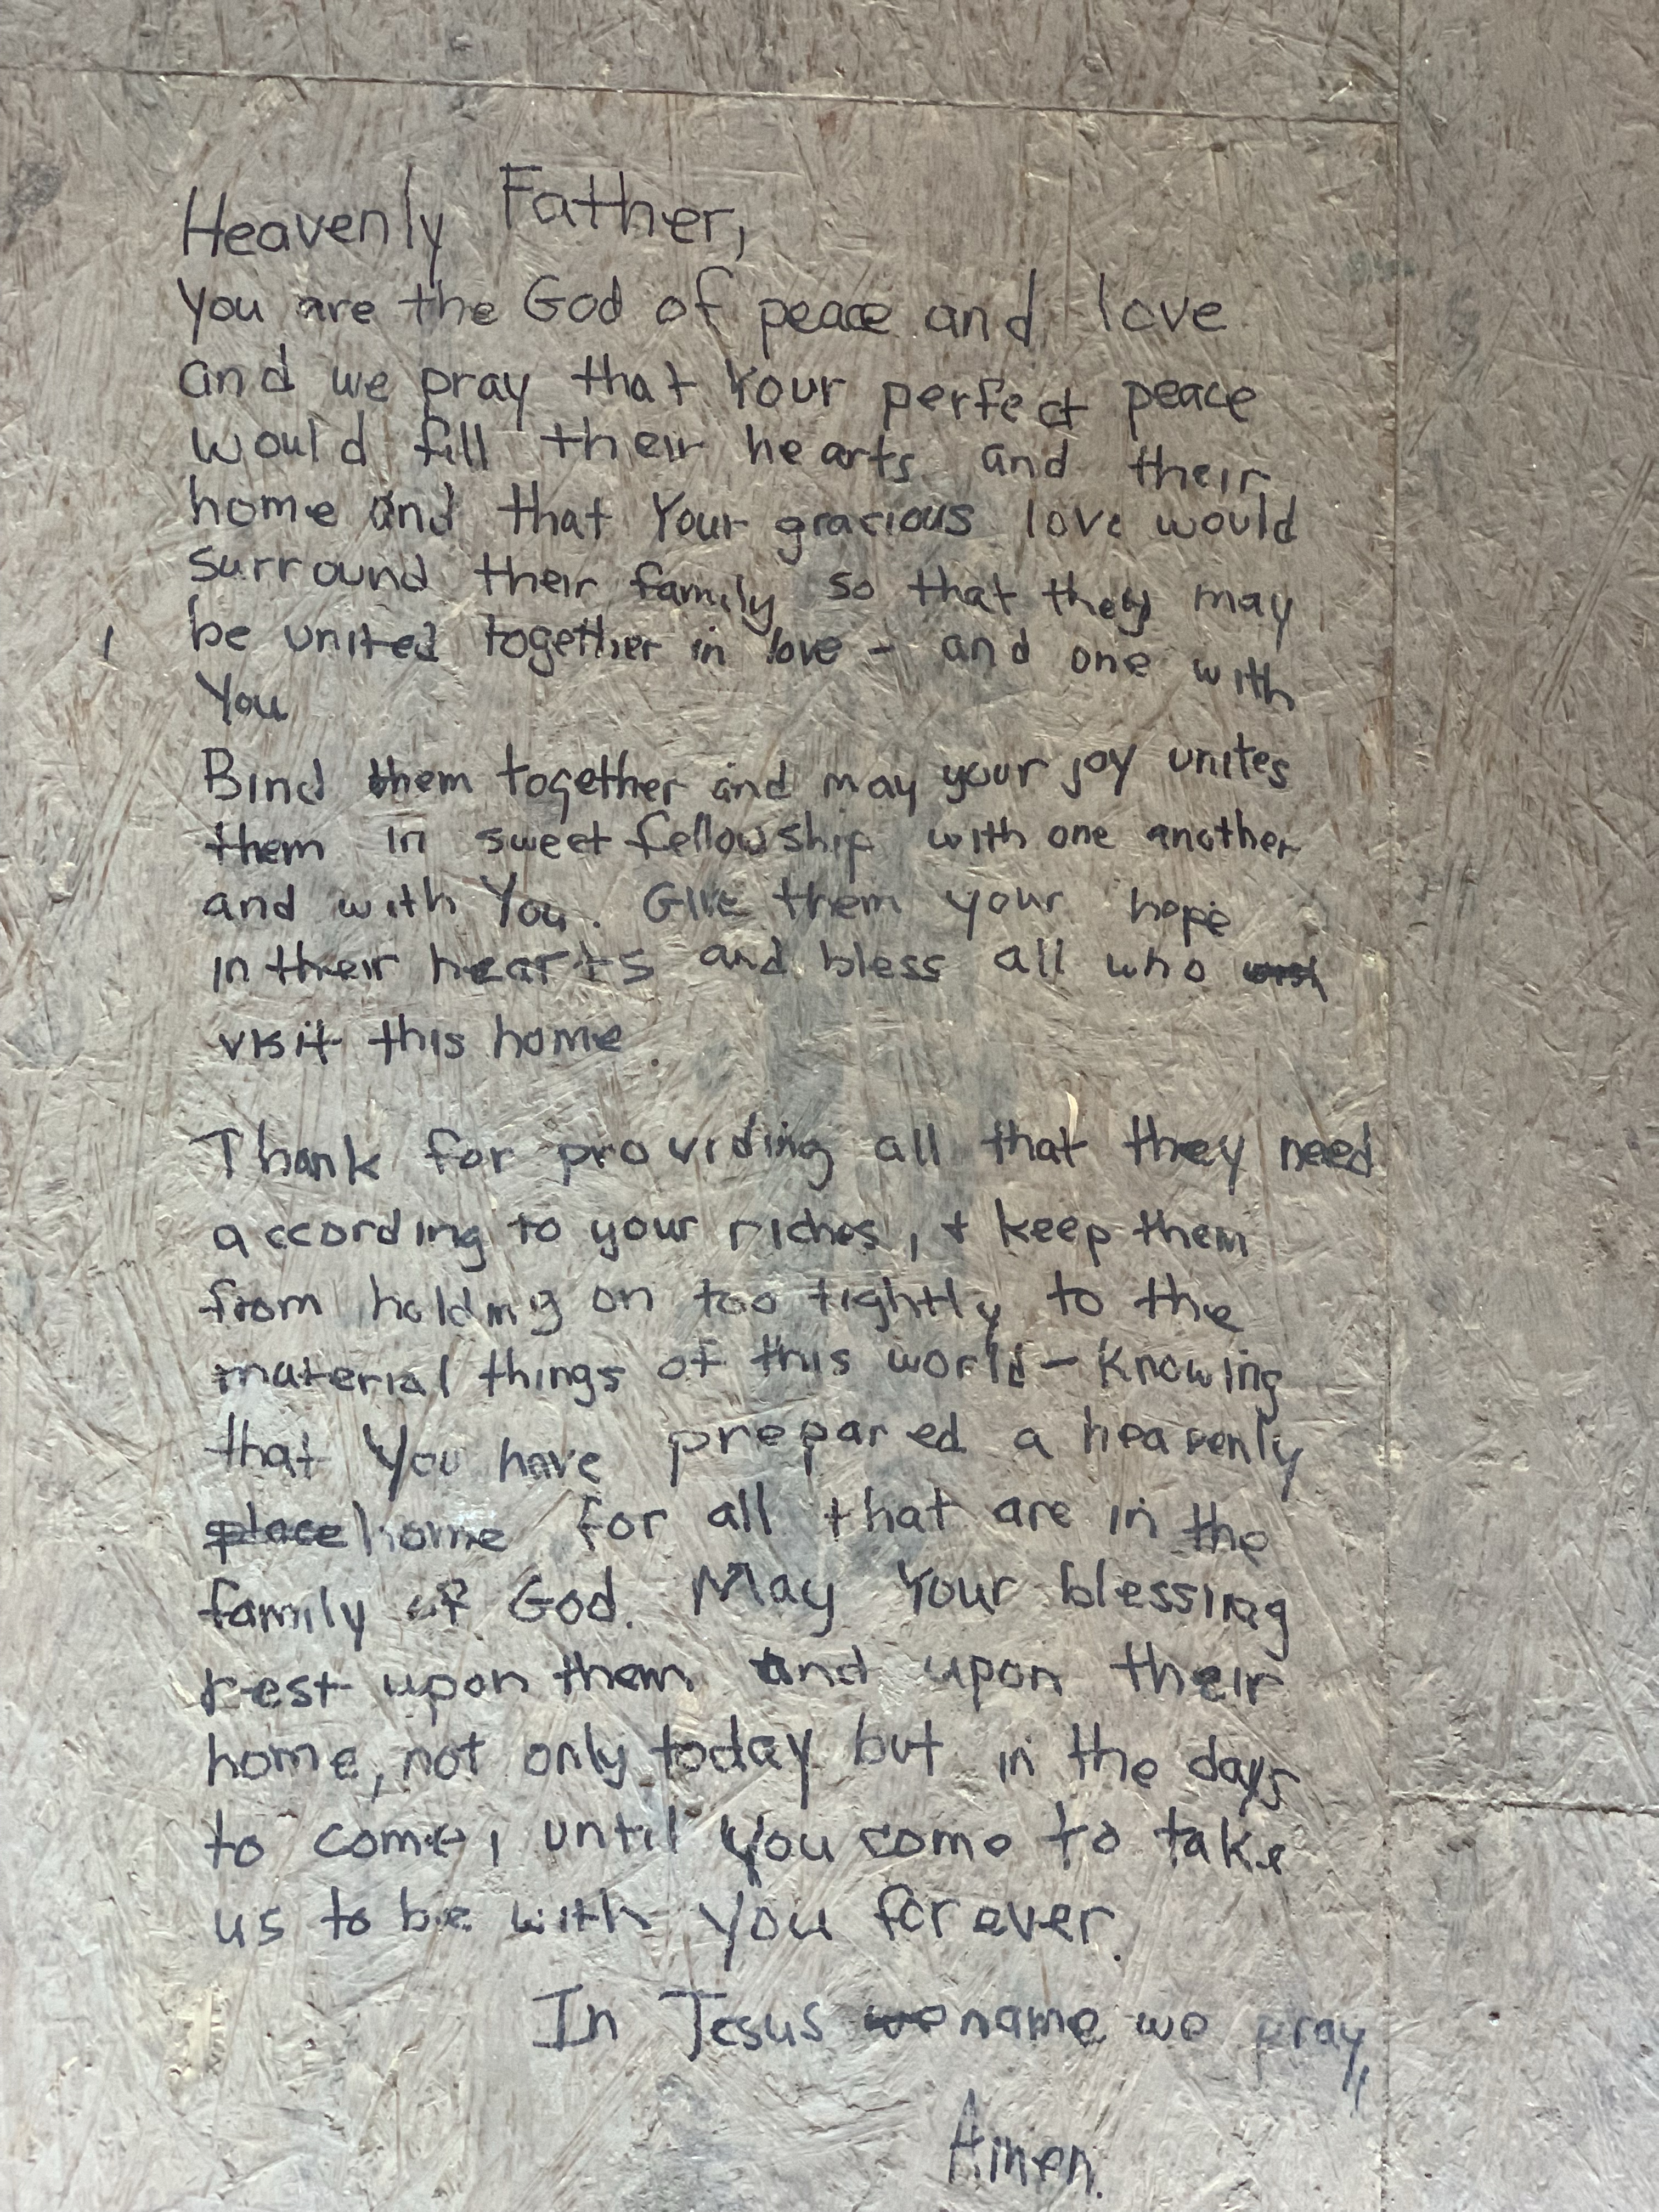 Heavenly Father,
You are the God of peace and love
and we pray that Your perfect peace
would fill their hearts and their
home and that Your gracious love would
surround their family so that they may
be united together in love - and one with
You
Bind them together and may your joy unites
them in sweet fellowship with one another
and with You. Give them your hope
in their hearts and bless all who
visit this home.
Thank for providing all that they need
according to your riches, + keep them
from holding on too tightly to the
material things of this world - knowing
that You have prepared a heavenly
place home for all that are in the
family of God. May Your blessing
rest upon them and upon their
home, not only today but in the days
to come, until you come to take
us to be with You forever.
In Jesus we name we pray,
Amen.